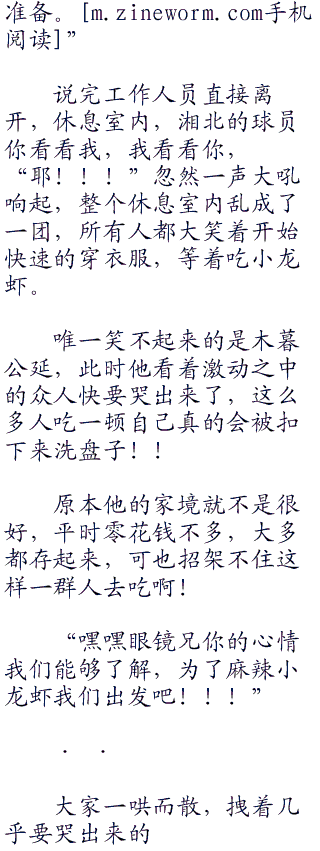 准备。[m.zineworm.com手机
阅读]”
说完工作人员直接离
开，休息室内，湘北的球员
你看看我，我看看你，
“耶！！！”忽然一声大吼
响起，整个休息室内乱成了
一团，所有人都大笑着开始
快速的穿衣服，等着吃小龙
虾。
唯一笑不起来的是木暮
公延，此时他看着激动之中
的众人快要哭出来了，这么
多人吃一顿自己真的会被扣
下来洗盘子！！
原本他的家境就不是很
好，平时零花钱不多，大多
都存起来，可也招架不住这
样一群人去吃啊！
“嘿嘿眼镜兄你的心情
我们能够了解，为了麻辣小
龙虾我们出发吧！！！”
．．
大家一哄而散，拽着几
乎要哭出来的